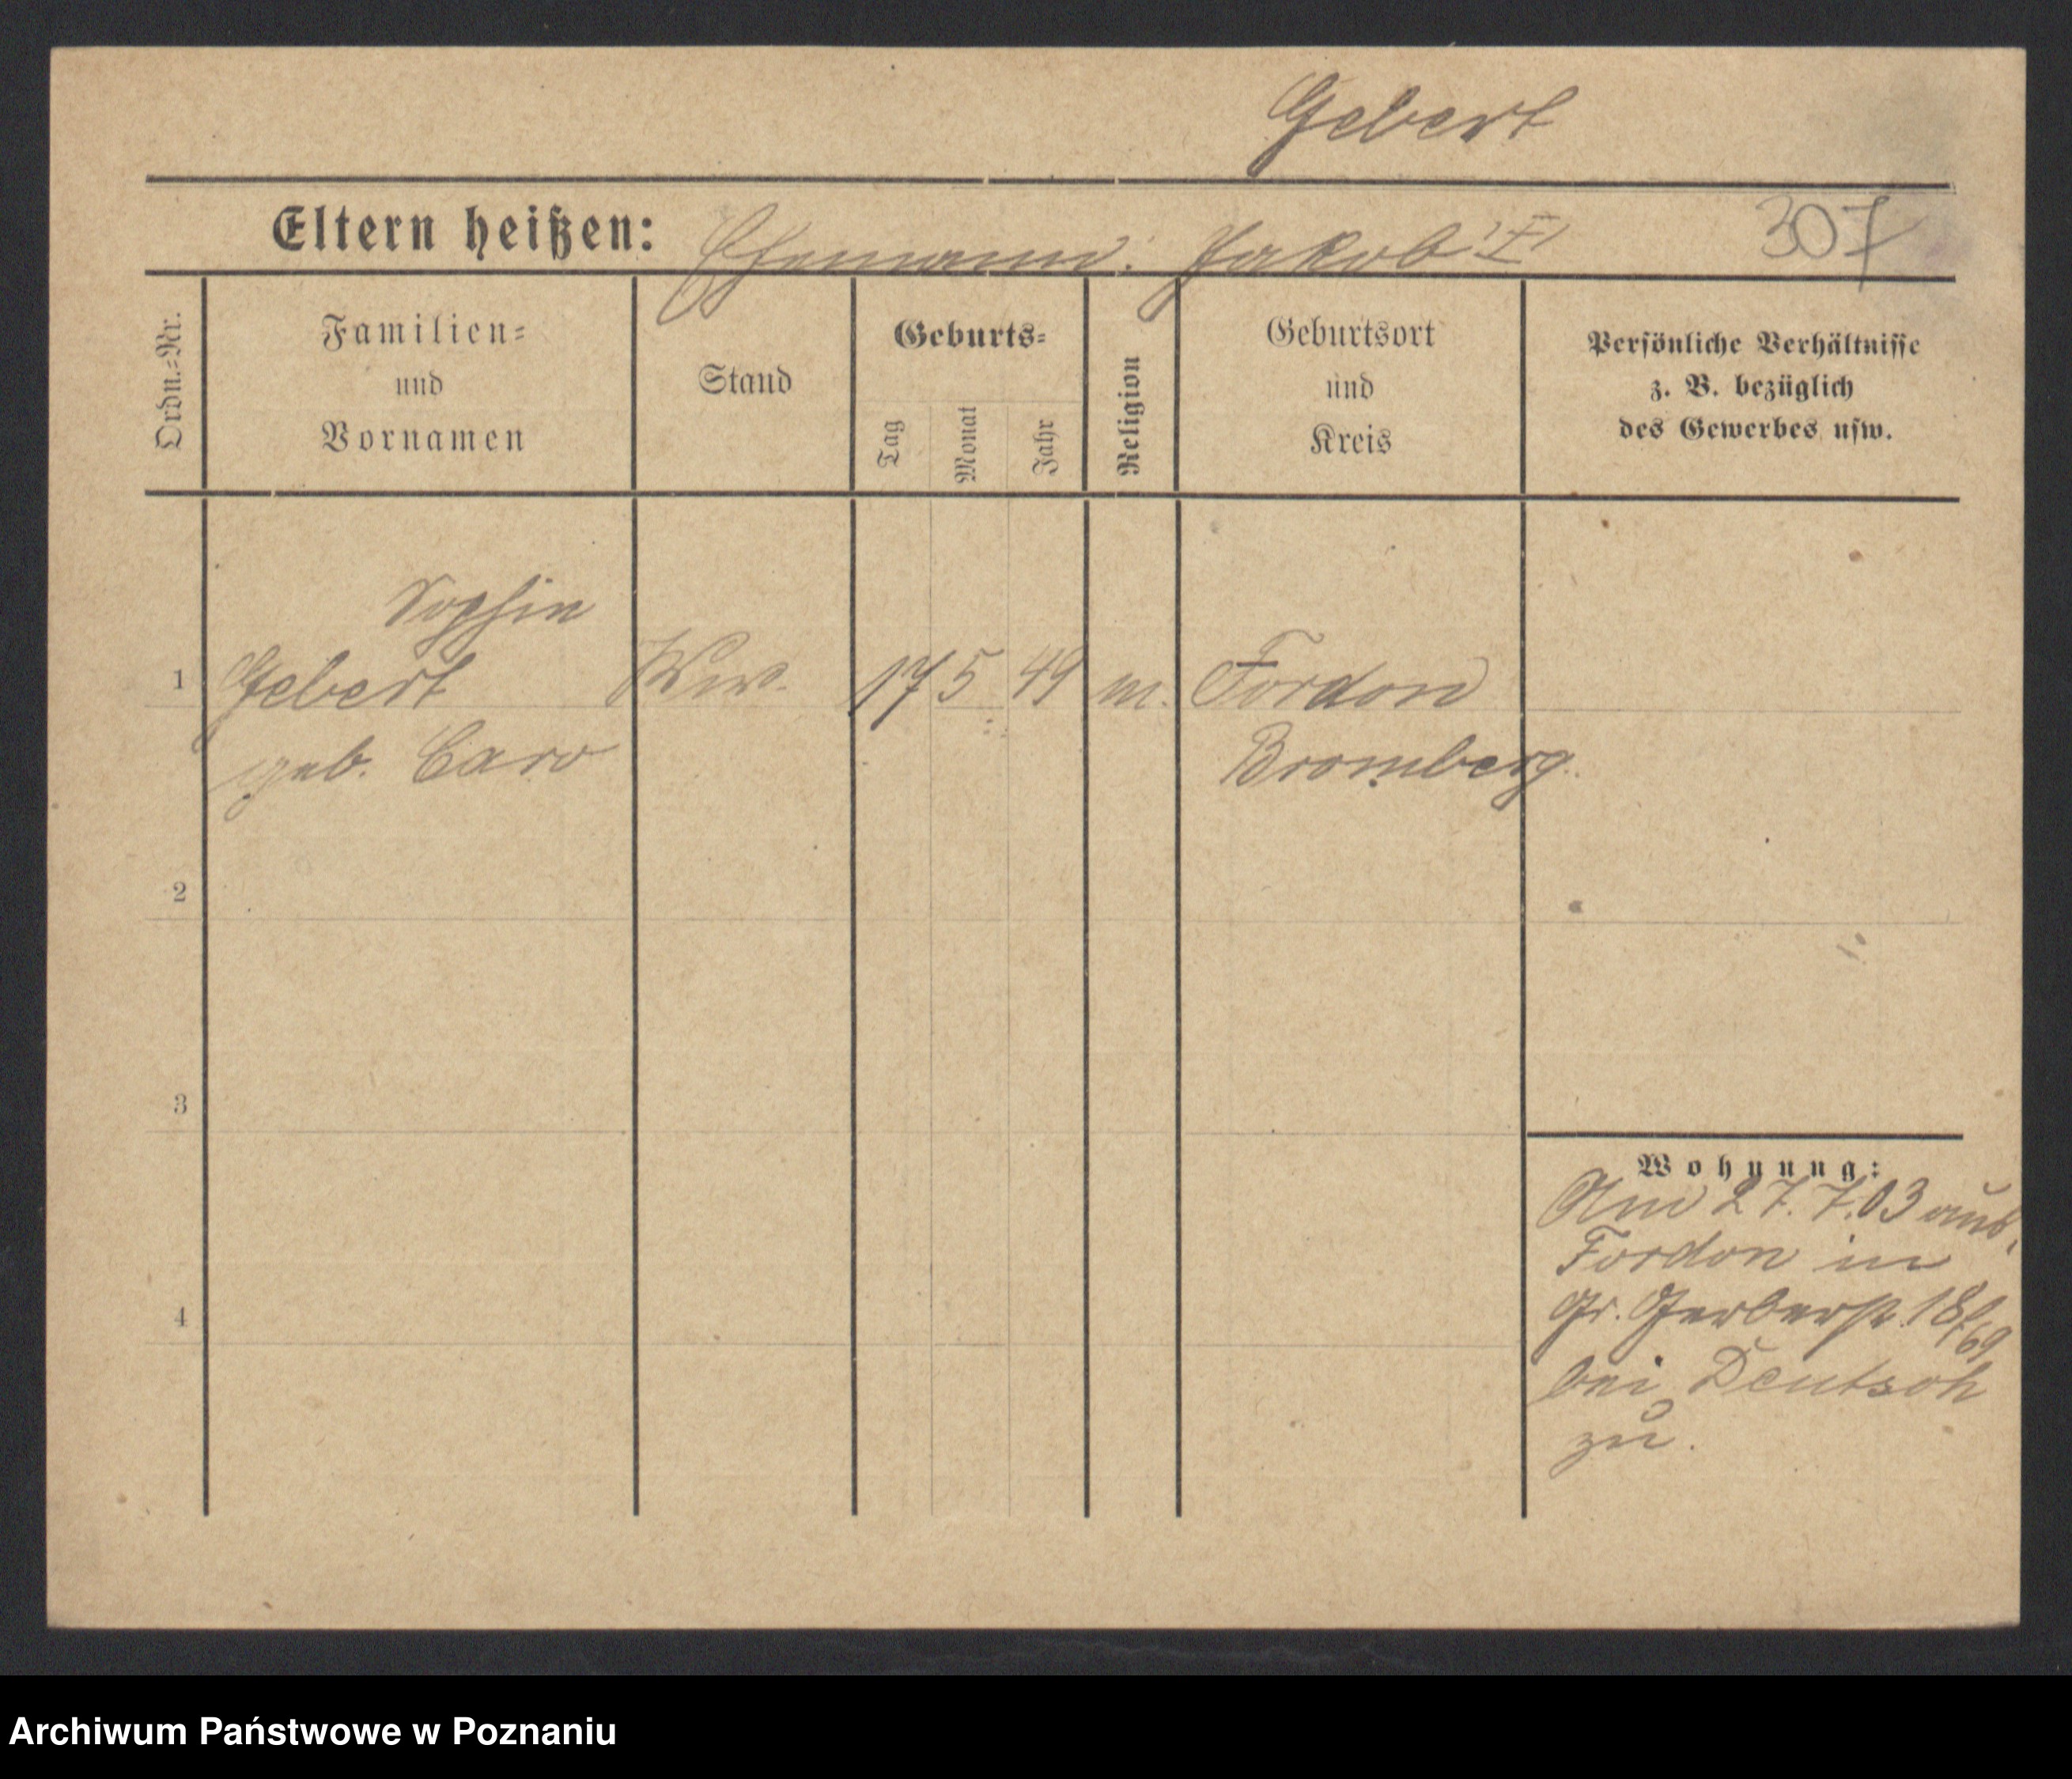 Gebert
Eltern heißen: Ehemann: Jakob 307
Ordn.=Nr.
Familien=
und
Vornamen
Stand
Geburts=
Tag
Monat
Jahr
Religion
Geburtsort
und
Kreis
Persönliche Verhältnisse
z. B. bezüglich
des Gewerbes usw.
Sophie
1 Gebert Ww. 17 5 49 m. Fordon
geb. Caro Bromberg.
2
3
4
Wohnung:
Am 27.7.03 aus
Fordon in
Gr. Gerberstr. 18/69
bei Deutsch
zu.
Archiwum Państwowe w Poznaniu